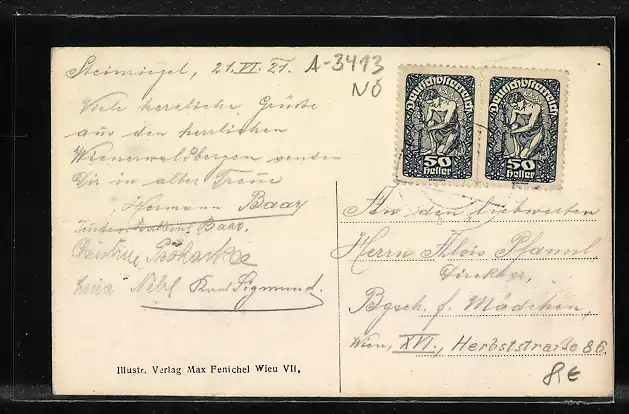 Steinriegel, 21.VI.21.
A-3413
NÖ
Viele herzliche Grüße
aus den herrlichen
Wienerwaldbergen senden
Dir in alter Treue
Hermann Baar
Baar.
Christine
Luisa Nebl Karl Sigmund.
Deutschösterreich
50
heller
Deutschösterreich
50
heller
An den liebwerten
Herrn Alois Pfannl
Direktor,
Bgsch. f. Mädchen,
Wien, XVI., Herbststraße 86.
8€
Illustr. Verlag Max Fenichel Wien VII.